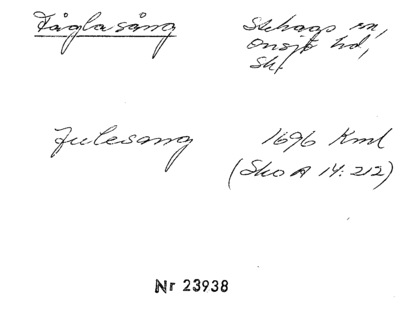 Fåglasång
Stehags sn,
Onsjö hd,
Sk.
Fulesang
1696 Kml
(Sko A 14:212)
Nr 23938